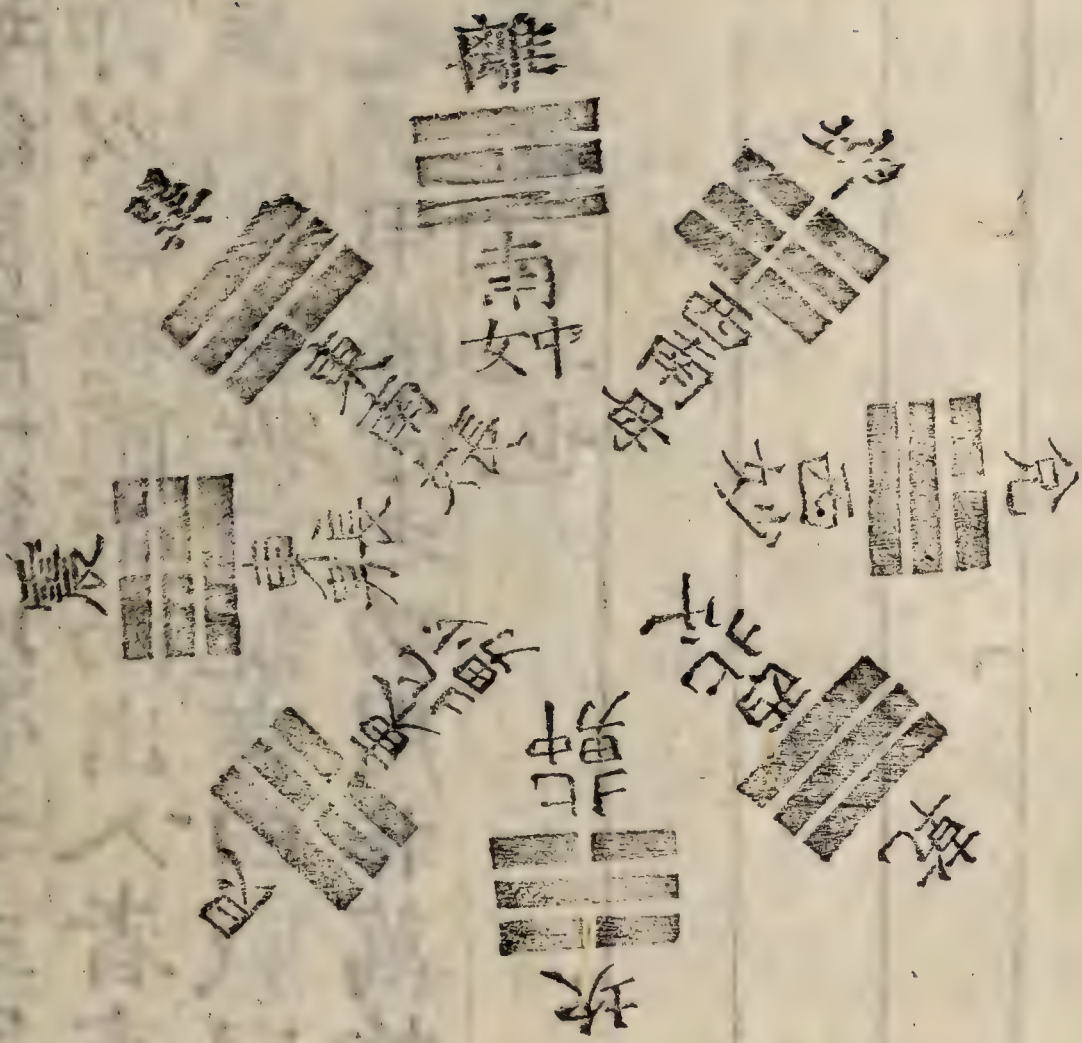 離
南
中女
坤
西南
母
兌
西
少女
乾
西北
父
坎
北
中男
艮
東北
少男
震
東
長男
巽
東南
長女